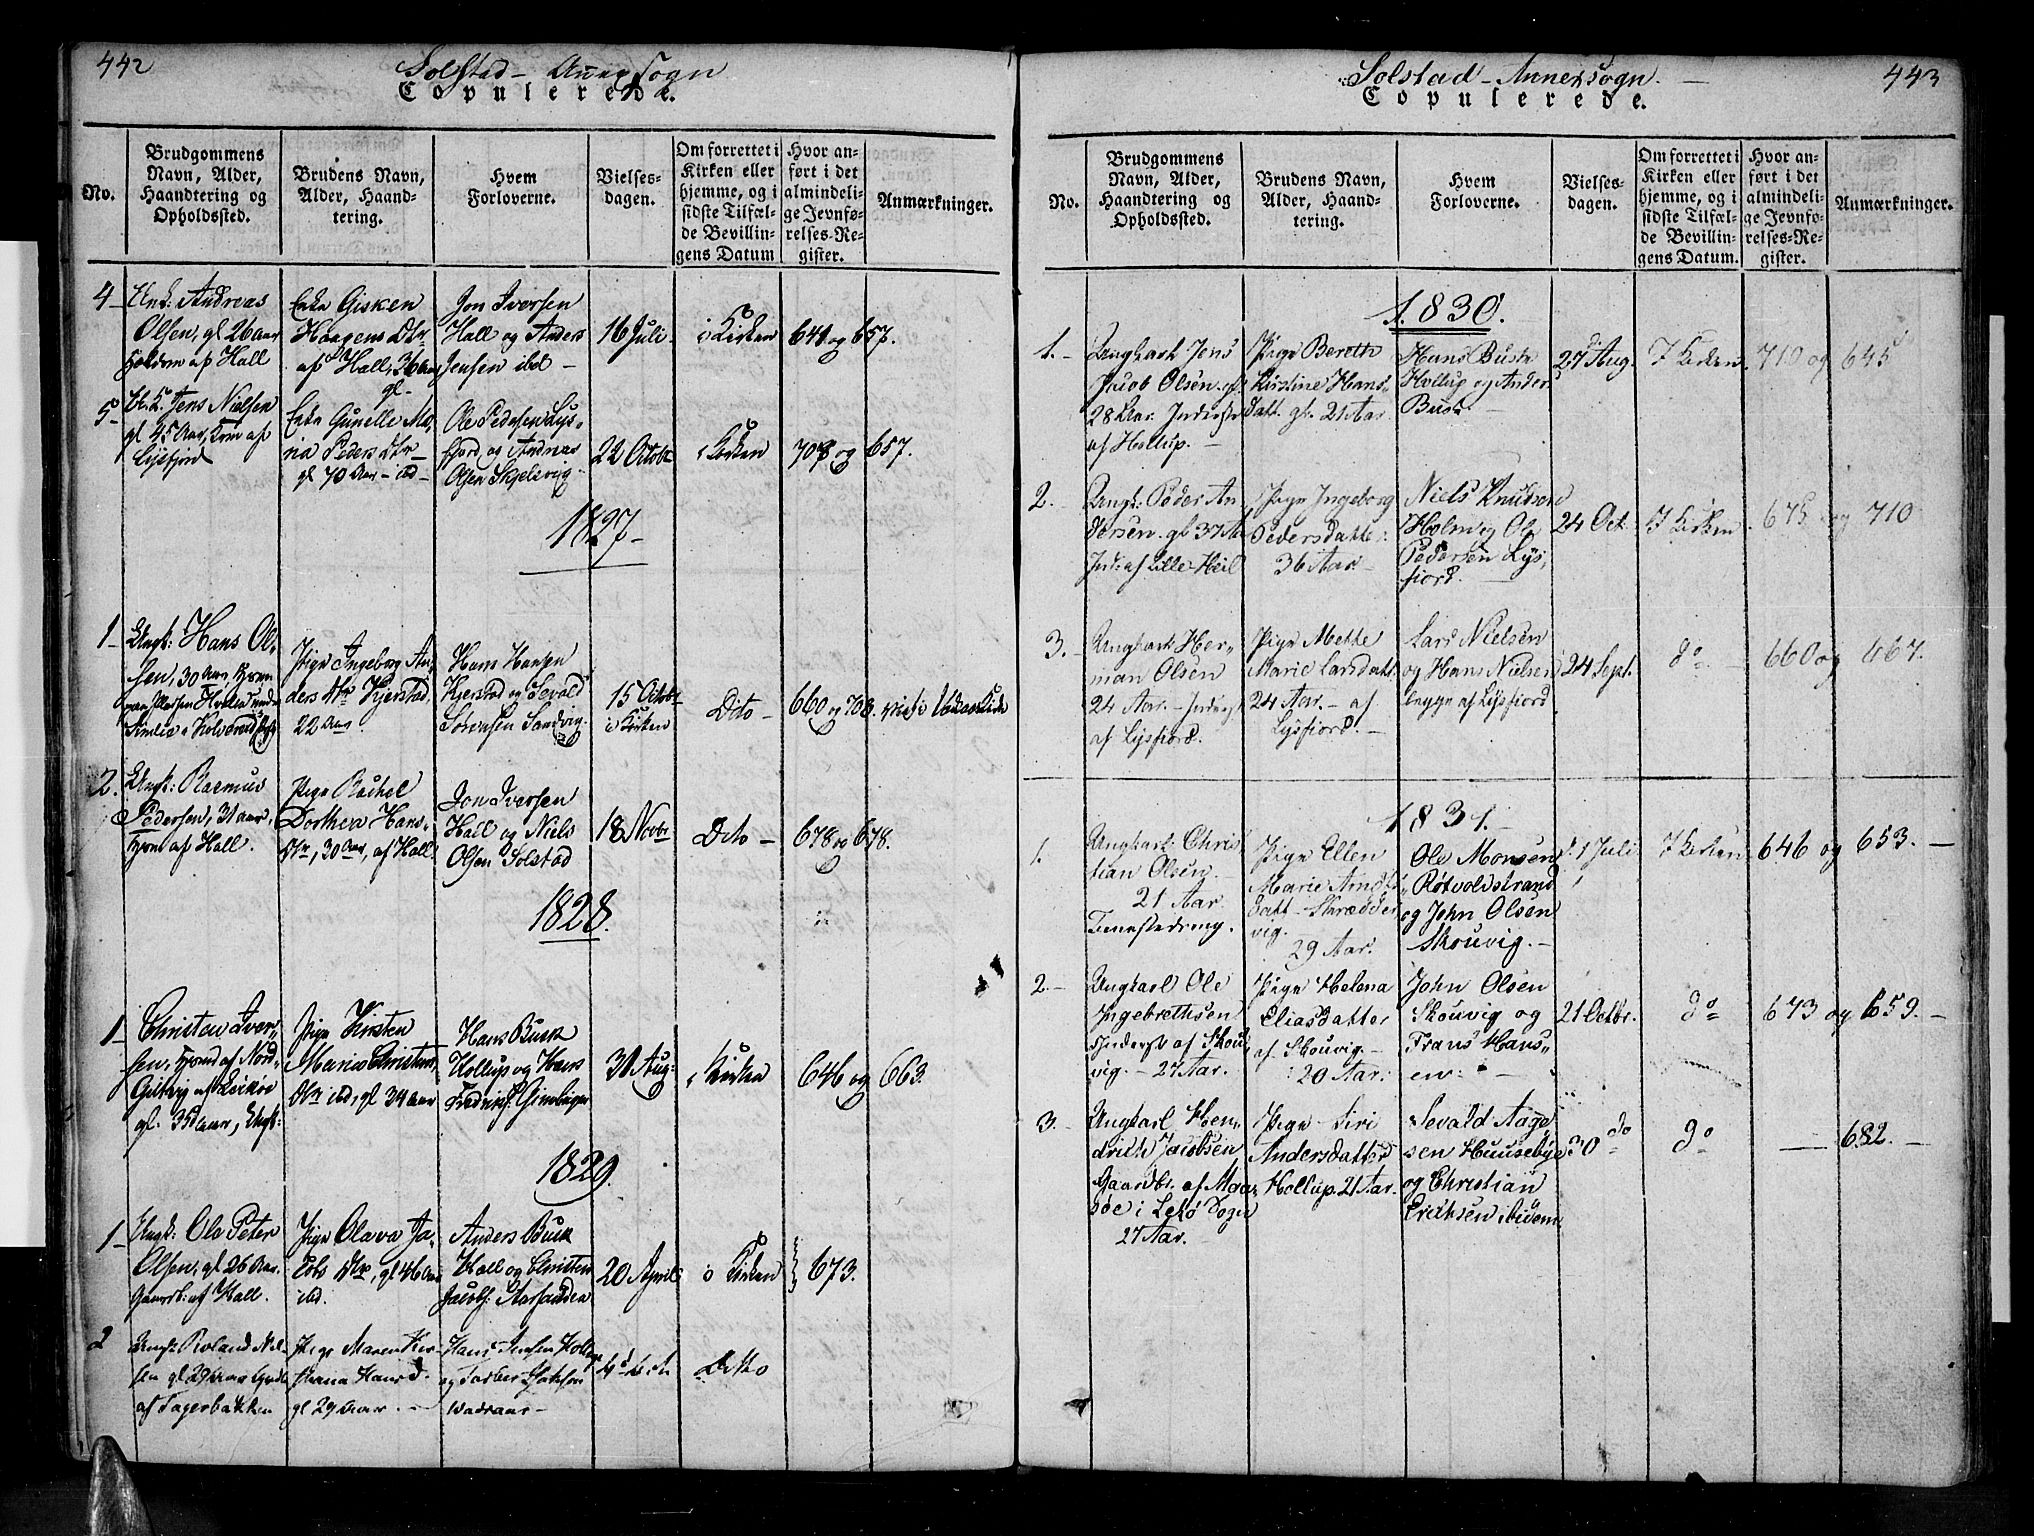 442
Solstad - Annexsogn
Copulerede.
No.
Brudgommens
Navn, Alder,
Haandtering og
Opholdssted.
Brudens Navn,
Alder, Haand-
tering.
Hvem
Forloverne.
Vielses-
dagen.
Om forrettet i
Kirken eller
hjemme, og i
sidste Tilfæl-
de Bevillin-
gens Datum
Hvor an-
ført i det
almindeli-
ge Jevnfø-
relses-Re-
gister.
Anmærkninger.
4-
Enk: Andreas
Olsen, gl 26 aar
af Hall
Enke Gisken
Haagens Dtr
af Hall, 36 aar
gl.
Jon Iversen
Hall og Anders
Jensen ibd -
16 Juli
i Kirken
641 og 657.
5-
Jens Nielsen
gl 45 Aar, af
Lysfjord
Enke Gunelle Ma-
ria Peders Dtr
gl 70 Aar - ibd -
Ole Pedersen Lys-
fjord og Andreas
Olsen Skjelsvig
22 Octobr
i Kirken
708 og 657.
1827-
1-
Ungk: Hans Ol-
sen, 30 Aar
Pige Ingeborg An-
ders Dtr Kjerstad,
22 Aar
Hans Hansen
Kjerstad og Sevald
Sørensen Sandvig
15 Octobr
i Kirken
Dito -
660 og 708.
2.
Ungk: Rasmus
Pedersen, 31 aar,
af Hall.
Pige Rachel
Dorthea Hans-
Dtr, 30 Aar, af Hall
Jon Iversen
Hall og Niels
Olsen Solstad
18 Novbr
Dito -
678 og 678.
1828.
1-
Christen Iver-
sen, af Nord-
gl. 35 aar, Ungk:
Pige Kirsten
Maria Christens
Dtr ibd, gl 34 aar
Hans Busk
Hollup og Hans
31 Aug:
i Kirken
646 og 663.
1829.
1-
Ungk: Ole Peter
Olsen, gl 26 Aar.
af Hall.
Pige Olava Ja-
cobs Dtr, gl 46 aar
ibd.
Anders Busk
Hall og Christen
Jacobs:
20 April
i Kirken
673.
2
Ungk: Roland Niel-
sen gl 29 Aar
af Fagerbakken
Pige Maren Kir-
stiana Hans D.
gl 29 Aar. -
Hans Jensen
og
Ditto
443
Solstad - Annexsogn. -
Copulerede.
No.
Brudgommens
Navn, Alder,
Haandtering og
Opholdssted.
Brudens Navn,
Alder, Haand-
tering.
Hvem
Forloverne.
Vielses-
dagen.
Om forrettet i
Kirken eller
hjemme, og i
sidste Tilfæl-
de Bevillin-
gens Datum.
Hvor an-
ført i det
almindeli-
ge Jevnfø-
relses-Re-
gister.
Anmærkninger.
1830.
1.-
Ungkarl Jens
Jacob Olsen. gl.
28 Aar. Inderst
af Hollup. -
Pige Bereth
Kirstine Hans-
datt. gl. 21 Aar.
Hans Busk
Hollup og Anders
Busk -
27 Aug.
I Kirken.
710 og 645
2.-
Ungk: Peder An-
dersen. gl 37 Aar
Ind: af Lille-Heil
Pige Ingeborg
Pedersdatter
36 Aar. -
Niels Knudsen
Holm og Ole
Pedersen Lys-
fiord. -
24 Oct.
I Kirken
675 og 710
3.-
Ungkarl Her-
man Olsen
24 Aar. - Inderst
af Lysfiord.
Pige Mette
Marie Larsdatt.
24 Aar. - af
Lysfiord. -
Lars Nielsen
og Hans Nielsen
begge af Lysfiord
24 Sept.
do -
660 og 667.
1831.
1.
Ungkarl Chris-
tian Olsen.
21 Aar.
Pige Ellen
Marie Arnts-
datt - Skrædder-
vig.
29 Aar.
Ole Monsen
Røtvoldstrand
og John Olsen
Skouvig. -
1 Juli
I Kirken
646 og 653. -
2.-
Ungkarl Ole
Ingebrethsen
Inderst af Skou-
vig. - 27 Aar.
Pige Helena
Eliasdatter
af Skouvig. -
20 Aar.
John Olsen
Skouvig og
Frans Hans-
en. -
21 Octbr.
do
673 og 659. -
3.-
Ungkarl Hen-
drich Jacobsen
Gaardbr. af Maa-
søe i Lekø Sogn
27 Aar. -
Pige Siri
Andersdatter
Hollup. 21 Aar.
Sevald Aage-
sen Huusebye
og Christian
Erichsen ibidem
30 do
do
-
682. -